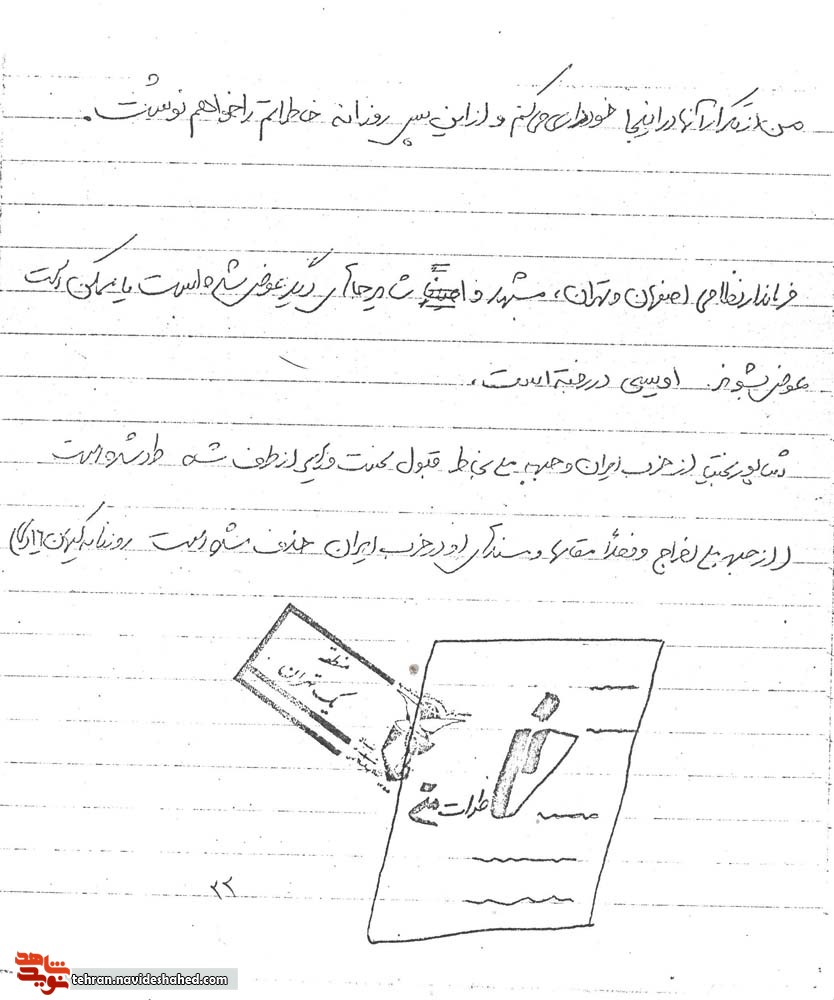 من از تکرار آنها در اینجا خودداری می‌کنم و از این پس روزانه خاطراتم را خواهم نوشت.
فرماندار نظامی اصفهان و تهران، مشهد و جاهای دیگر عوض شده است یا ممکن است
عوض بشوند. اویسی در رفته است.
شاپور بختیار از حزب ایران و جبهه ملی بخاطر قبول نخست وزیری از طرف شاه طرد شده است
(از جبهه ملی اخراج و فعلاً مقامها و سمتهای او در حزب ایران حذف شده است روزنامه کیهان
منطقه
یک تهران
خاطرات من
۲۲
نوید شاهد
tehran.navideshahed.com